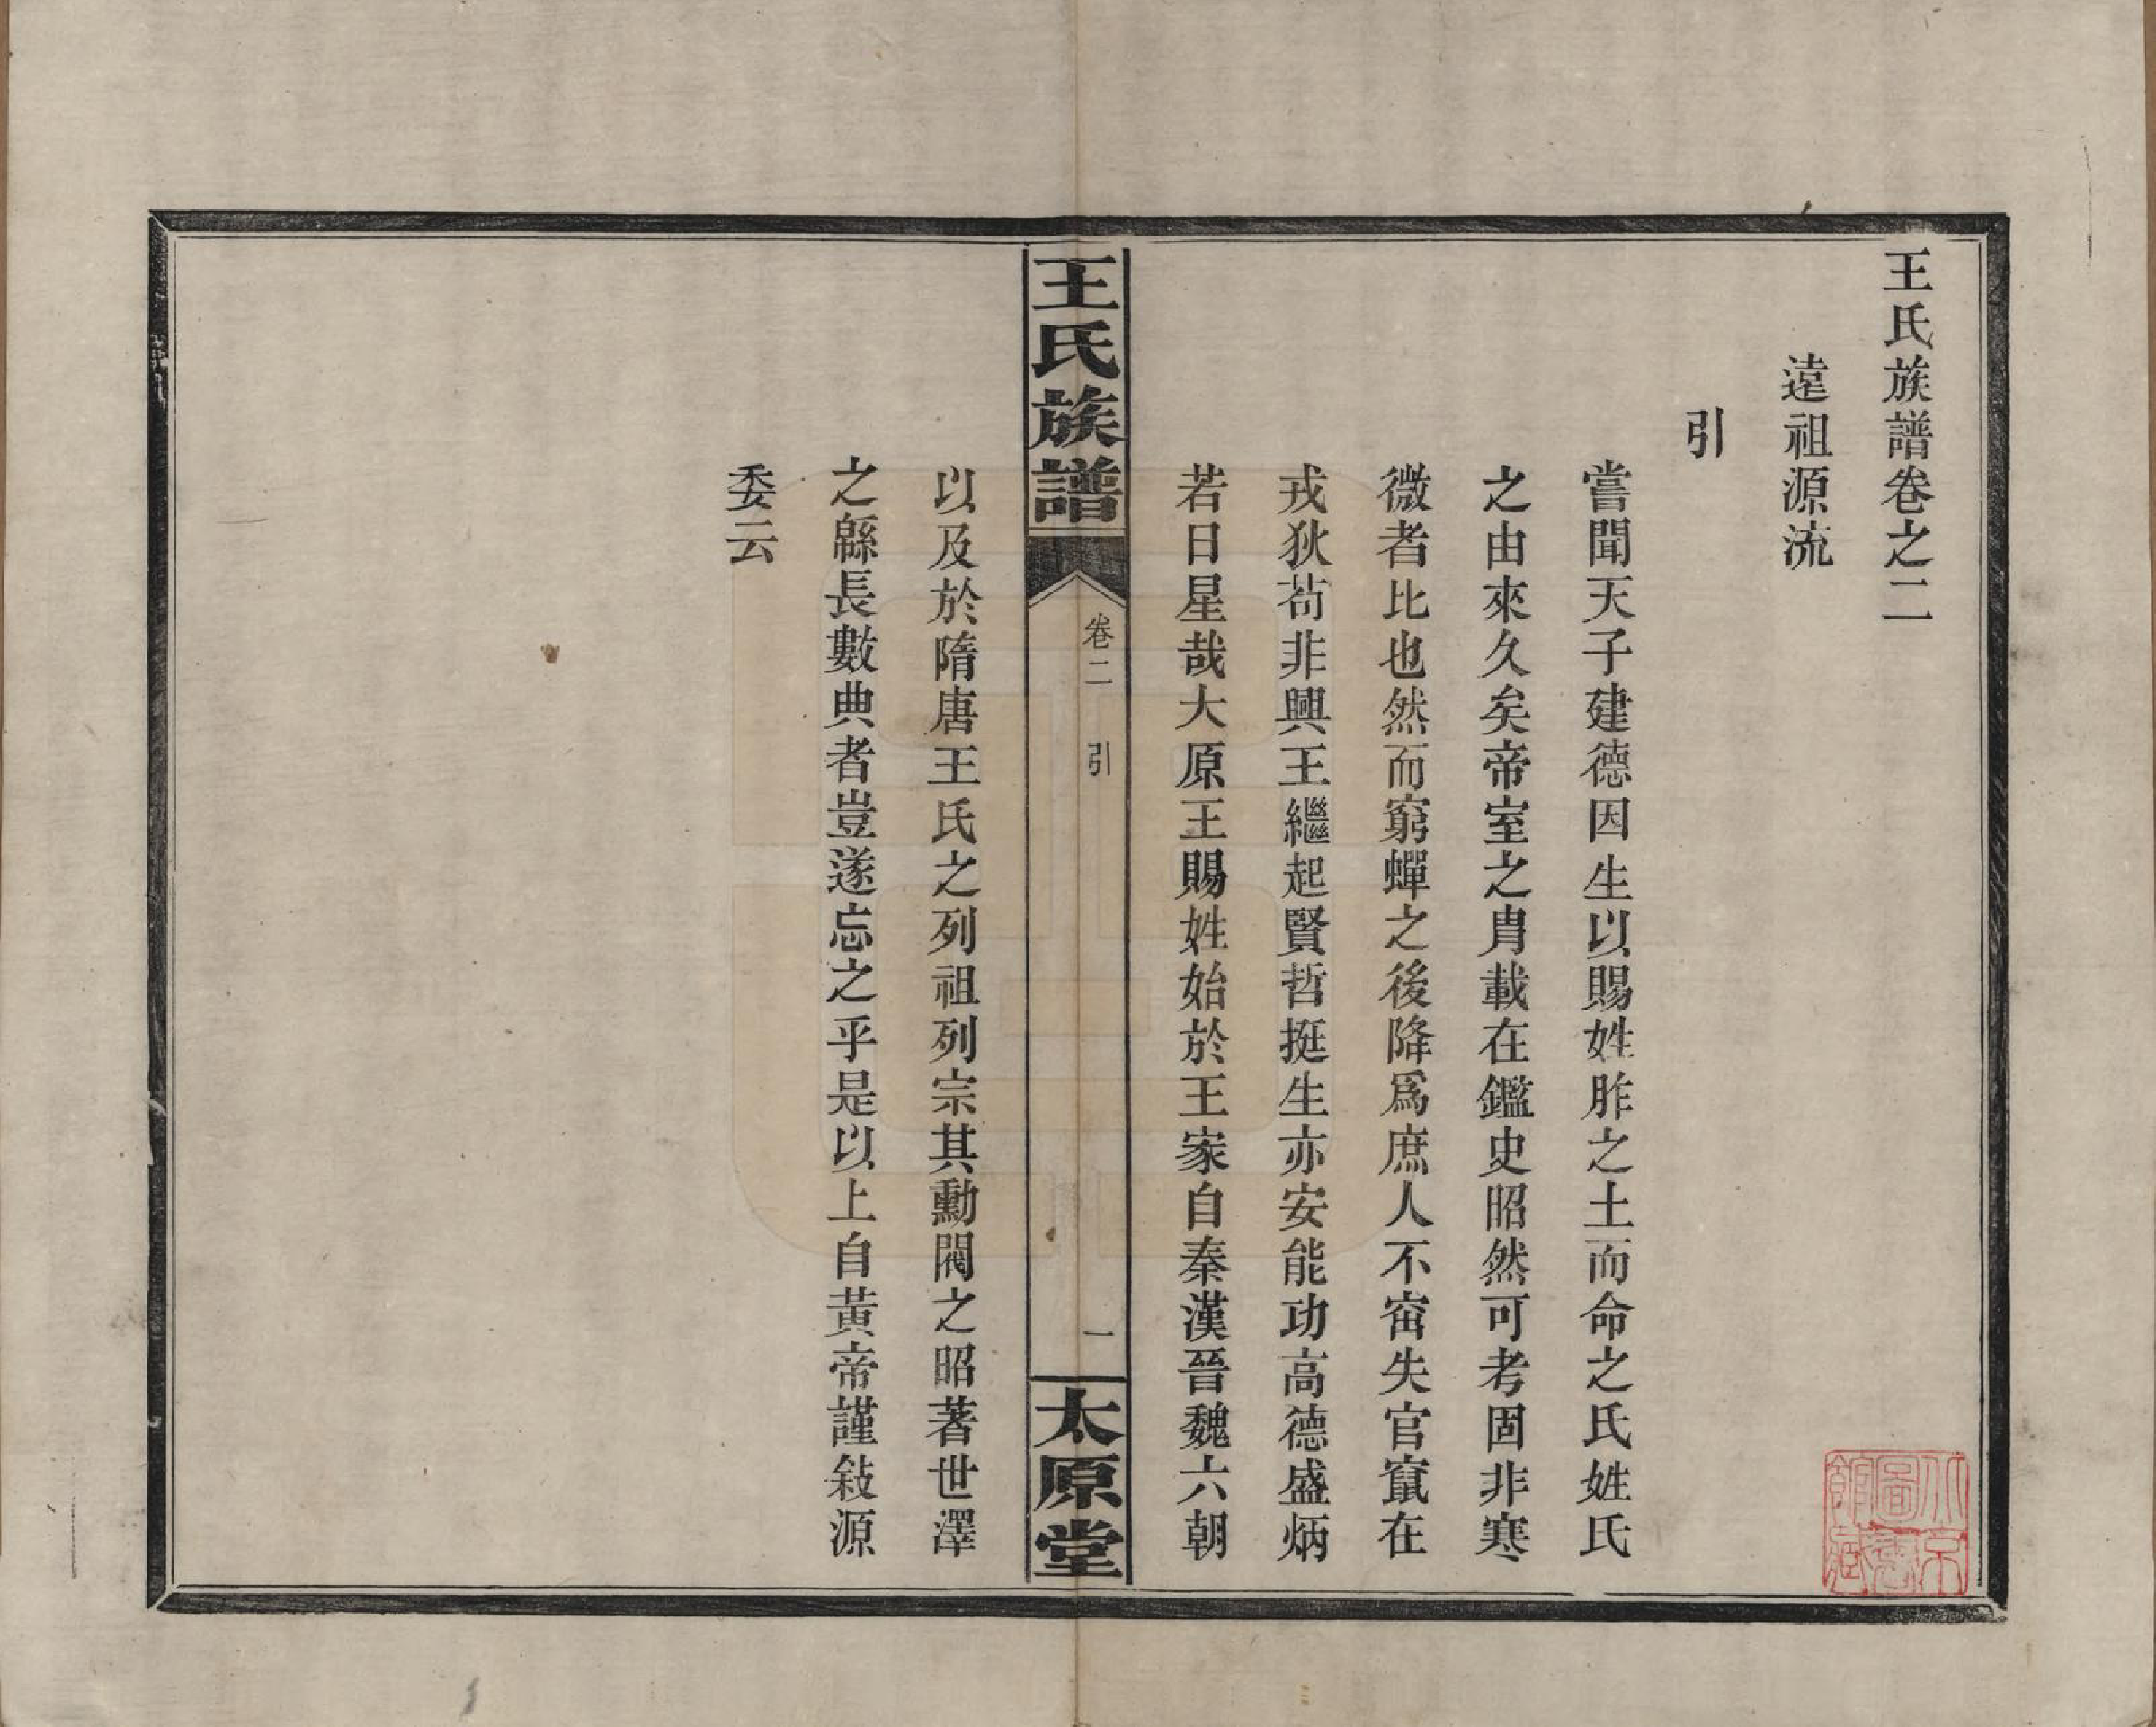 王氏族譜卷之二
遠祖源流
引
嘗聞天子建德因生以賜姓胙之土而命之氏姓氏
之由來久矣帝室之胄載在鑑史昭然可考固非寒
微者比也然而窮蟬之後降爲庶人不窋失官竄在
戎狄苟非興王繼起賢哲挺生亦安能功高德盛炳
若日星哉大原王賜姓始於王家自秦漢晉魏六朝
王氏族譜
卷二
引
一
太原堂
以及於隋唐王氏之列祖列宗其勳閥之昭著世澤
之緜長數典者豈遂忘之乎是以上自黃帝謹敍源
委云
北京圖書館藏